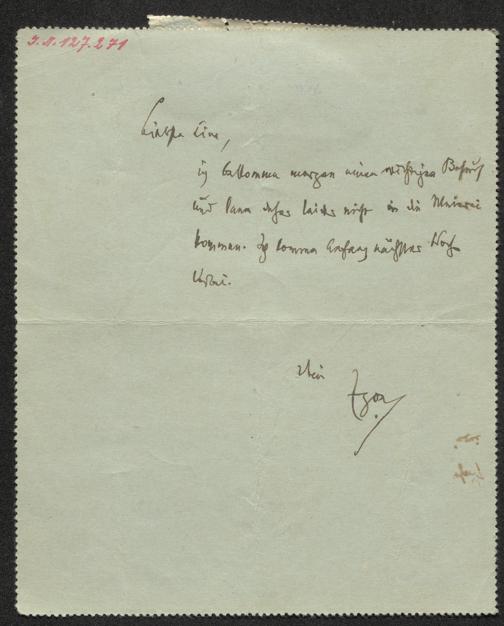 I.N. 127.271
Liebste Line,
ich bekomme morgen einen wichtigen Besuch
und kann daher leider nicht in die Meierei
kommen. Ich komme Anfang nächster Woche
vorbei.
Dein
Egon